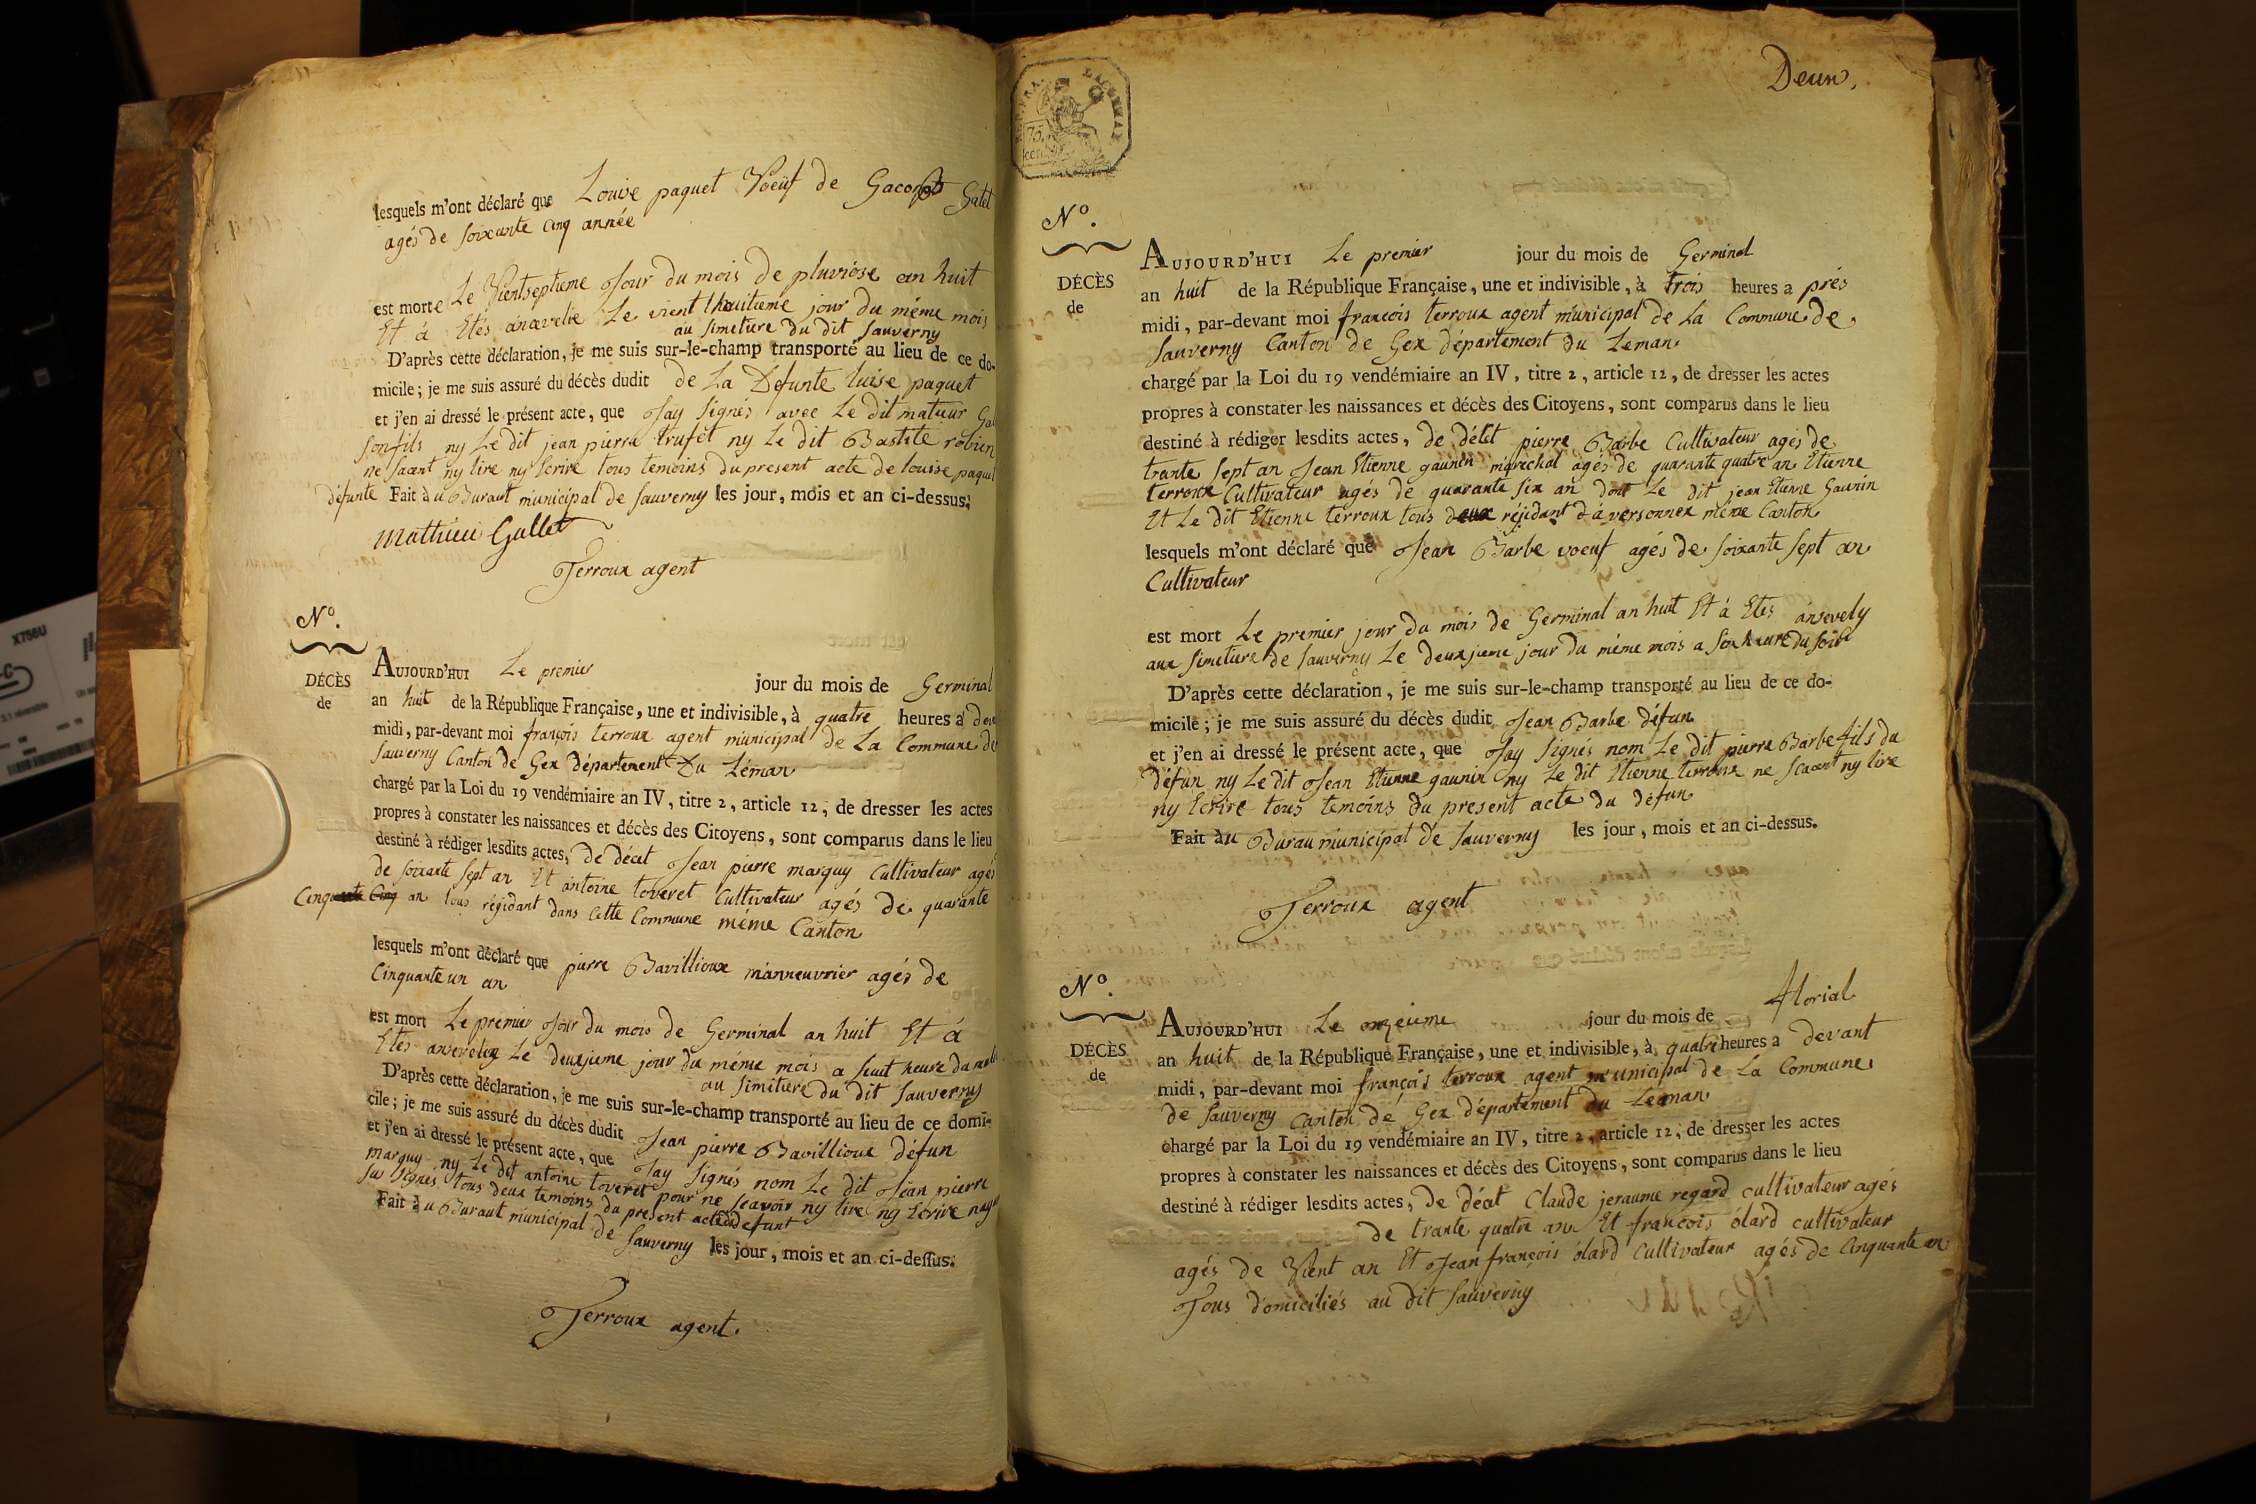 lesquels m'ont déclaré que Louise paquet Voeuf de Galet
agés de soixante cinq année
est morte Le Vientseptieme Jour du mois de pluviose an huit
Et á Etés Le vient huitieme jour du méme mois
au simeture du dit Sauverny
D'après cette déclaration, je me suis sur-le-champ transporté au lieu de ce do-
micile; je me suis assuré du décès dudit de La Defunte luise paquet
et j'en ai dressé le présent acte, que Jay signés avec Le dit matieur
son fils ny Le dit jean pierre trufet ny Le dit Bastite robin
ne sacent ny lire ny Ecrire tous temoins du present acte de louise paquet
défunte Fait àu Buraut municipal de Sauverny les jour, mois et an ci-dessus;
Mathieu Gallet
Terroux agent
N°.
DÉCÈS
de
AUJOURD'HUI Le premier jour du mois de Germinal
an huit de la République Française, une et indivisible, à quatre heures a
midi, par-devant moi françois terroux agent municipal de La Commune de
Sauverny Canton de Gex département Du Léman
chargé par la Loi du 19 vendémiaire an IV, titre 2, article 12, de dresser les actes
propres à constater les naissances et décès des Citoyens, sont comparus dans le lieu
destiné à rédiger lesdits actes, De décet Jean pierre marquy Cultivateur agés
de soixante sept an Et antoine toveret Cultivateur agés De quarante
Cinq an tous réjidant dans Cette Commune méme Canton
lesquels m'ont déclaré que pierre Bavillioux manneuvrier agés de
Cinquante un an
est mort Le premier Jour du mois de Germinal an huit Et á
Etés Le deuxjieme jour du méme mois a huit heure du
au simiture du dit Sauverny
D'après cette déclaration, je me suis sur-le-champ transporté au lieu de ce domi-
cile; je me suis assuré du décès dudit Jean pierre Bavillioux défun
et j'en ai dressé le présent acte, que Jay signés nom Le dit Jean pierre
marquy ny Le dit antoine toveret pour ne seavoir ny lire ny Ecrire
signés tous deux temoins du present acte défunt
Fait àu Buraut municipal de Sauverny les jour, mois et an ci-dessus.
Terroux agent.
Deux.
75.
cent.
N°.
DÉCÈS
de
AUJOURD'HUI Le premier jour du mois de Germinal
an huit de la République Française, une et indivisible, à trois heures a prés
midi, par-devant moi francois terroux agent municipal de La Commune de
Sauverny Canton de Gex département du Leman
chargé par la Loi du 19 vendémiaire an IV, titre 2, article 12, de dresser les actes
propres à constater les naissances et décès des Citoyens, sont comparus dans le lieu
destiné à rédiger lesdits actes, de délét pierre Barbe Cultivateur agés de
trante sept an Jean Etienne gaunin maréchal agés de quarante quatre an Etienne
terroux Cultivateur agés de quarante six an dont Le dit jean Etienne Gaunin
Et Le dit Etienne terroux tous deux réjidant dáversonnex méme Canton
lesquels m'ont déclaré que Jean Barbe voeuf agés de soixante sept an
Cultivateur
est mort Le premier jour du mois de Germinal an huit Et á Etés ansevely
aux simeture de Sauverny Le deuxjieme jour du méme mois a six heure Du soir
D'après cette déclaration, je me suis sur-le-champ transporté au lieu de ce do-
micile; je me suis assuré du décès dudit Jean Barbe défun
et j'en ai dressé le présent acte, que Jay signés nom Le dit pierre Barbe fils du
défun ny Le dit Jean Etienne gaunin ny Le dit Etienne terroux ne scacent ny lire
ny Ecrire tous temoins du present acte du défun
Fait àu Burau municipal de Sauverny les jour, mois et an ci-dessus.
Terroux agent
N°.
DÉCÈS
de
AUJOURD'HUI Le onzeieme jour du mois de florial
an huit de la République Française, une et indivisible, à quatre heures a devant
midi, par-devant moi françois terroux agent municipal de La Commune
de Sauverny Canton de Gex département du Leman
chargé par la Loi du 19 vendémiaire an IV, titre 2, article 12, de dresser les actes
propres à constater les naissances et décès des Citoyens, sont comparus dans le lieu
destiné à rédiger lesdits actes, De décét Claude jeraume regard cultivateur agés
de trante quatre an Et francois ólard cultivateur
agés de Vient an Et Jean françois ólard Cultivateur agés de Cinquante an
Tous domiciliés au dit Sauverny
X756U